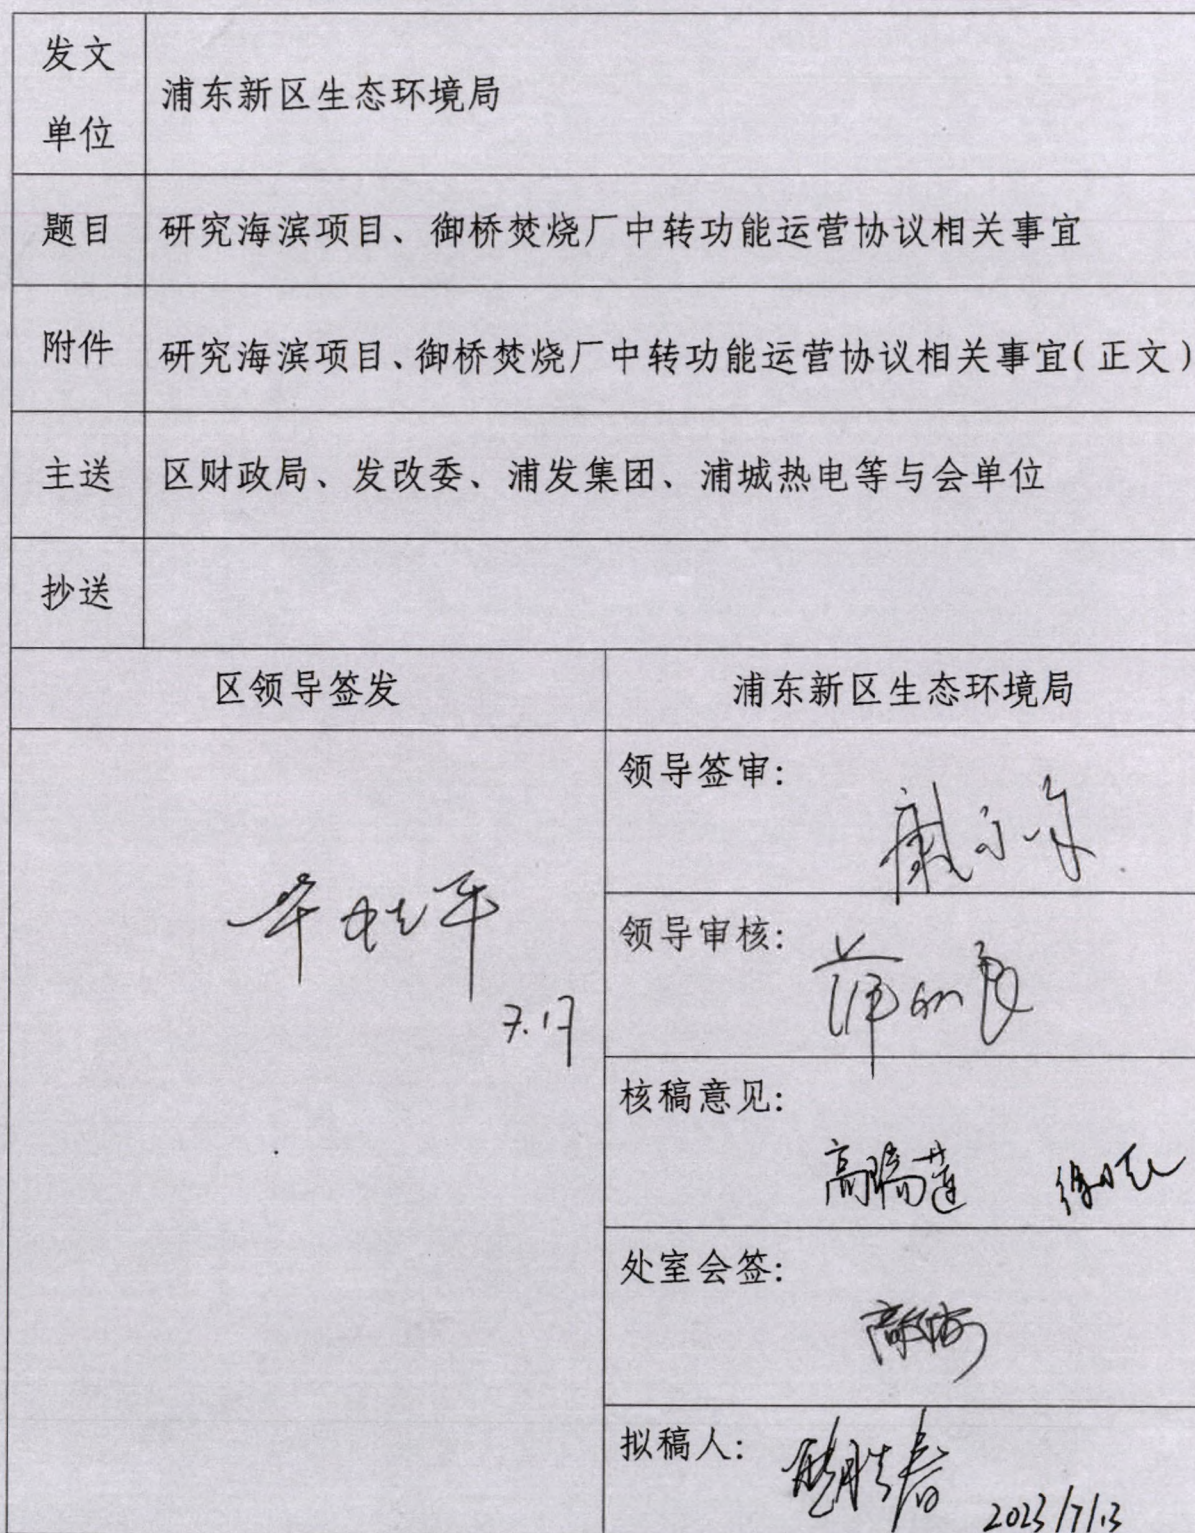 发文
单位
浦东新区生态环境局
题目
研究海滨项目、御桥焚烧厂中转功能运营协议相关事宜
附件
研究海滨项目、御桥焚烧厂中转功能运营协议相关事宜(正文)
主送
区财政局、发改委、浦发集团、浦城热电等与会单位
抄送
区领导签发
浦东新区生态环境局
7.17
领导签审:
领导审核:
核稿意见:
处室会签:
拟稿人:
2023/7/13